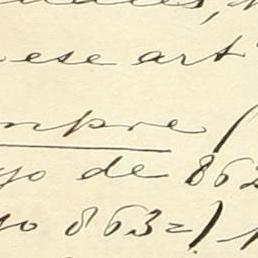 ese art
mpre (
yo de 862
yo 863=)